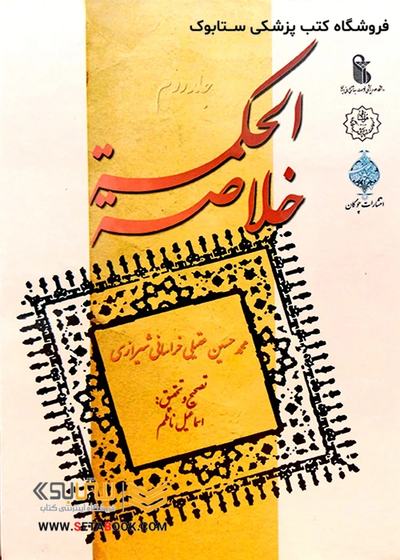 فروشگاه کتب پزشکی ستابوک
جلد دوم
خلاصة
الحکمة
انتشارات چوگان
محمد حسین عقیلی خراسانی شیرازی
تصحیح و تحقیق:
اسماعیل ناظم
فروشگاه اینترنتی کتاب
WWW.SETABOOK.COM